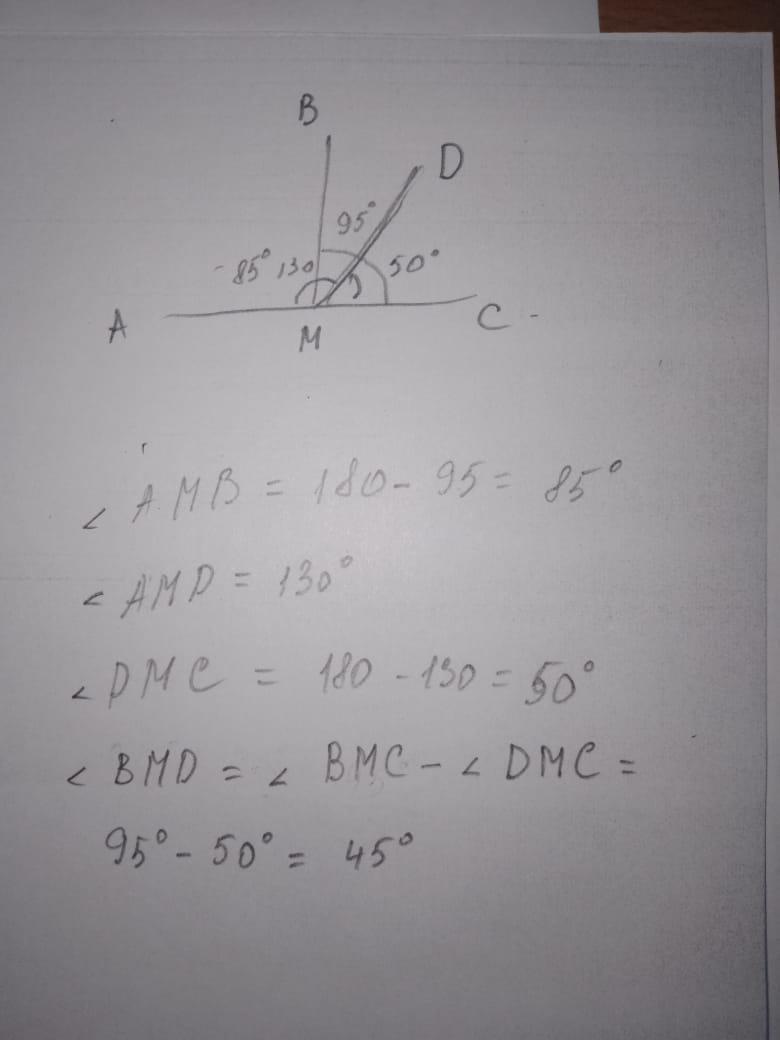 B
D
95°
85° 130 50°
A
M
C
∠ AMB = 180 - 95 = 85°
∠ AMD = 130°
∠ DMC = 180 - 130 = 50°
∠ BMD = ∠ BMC - ∠ DMC =
95° - 50° = 45°